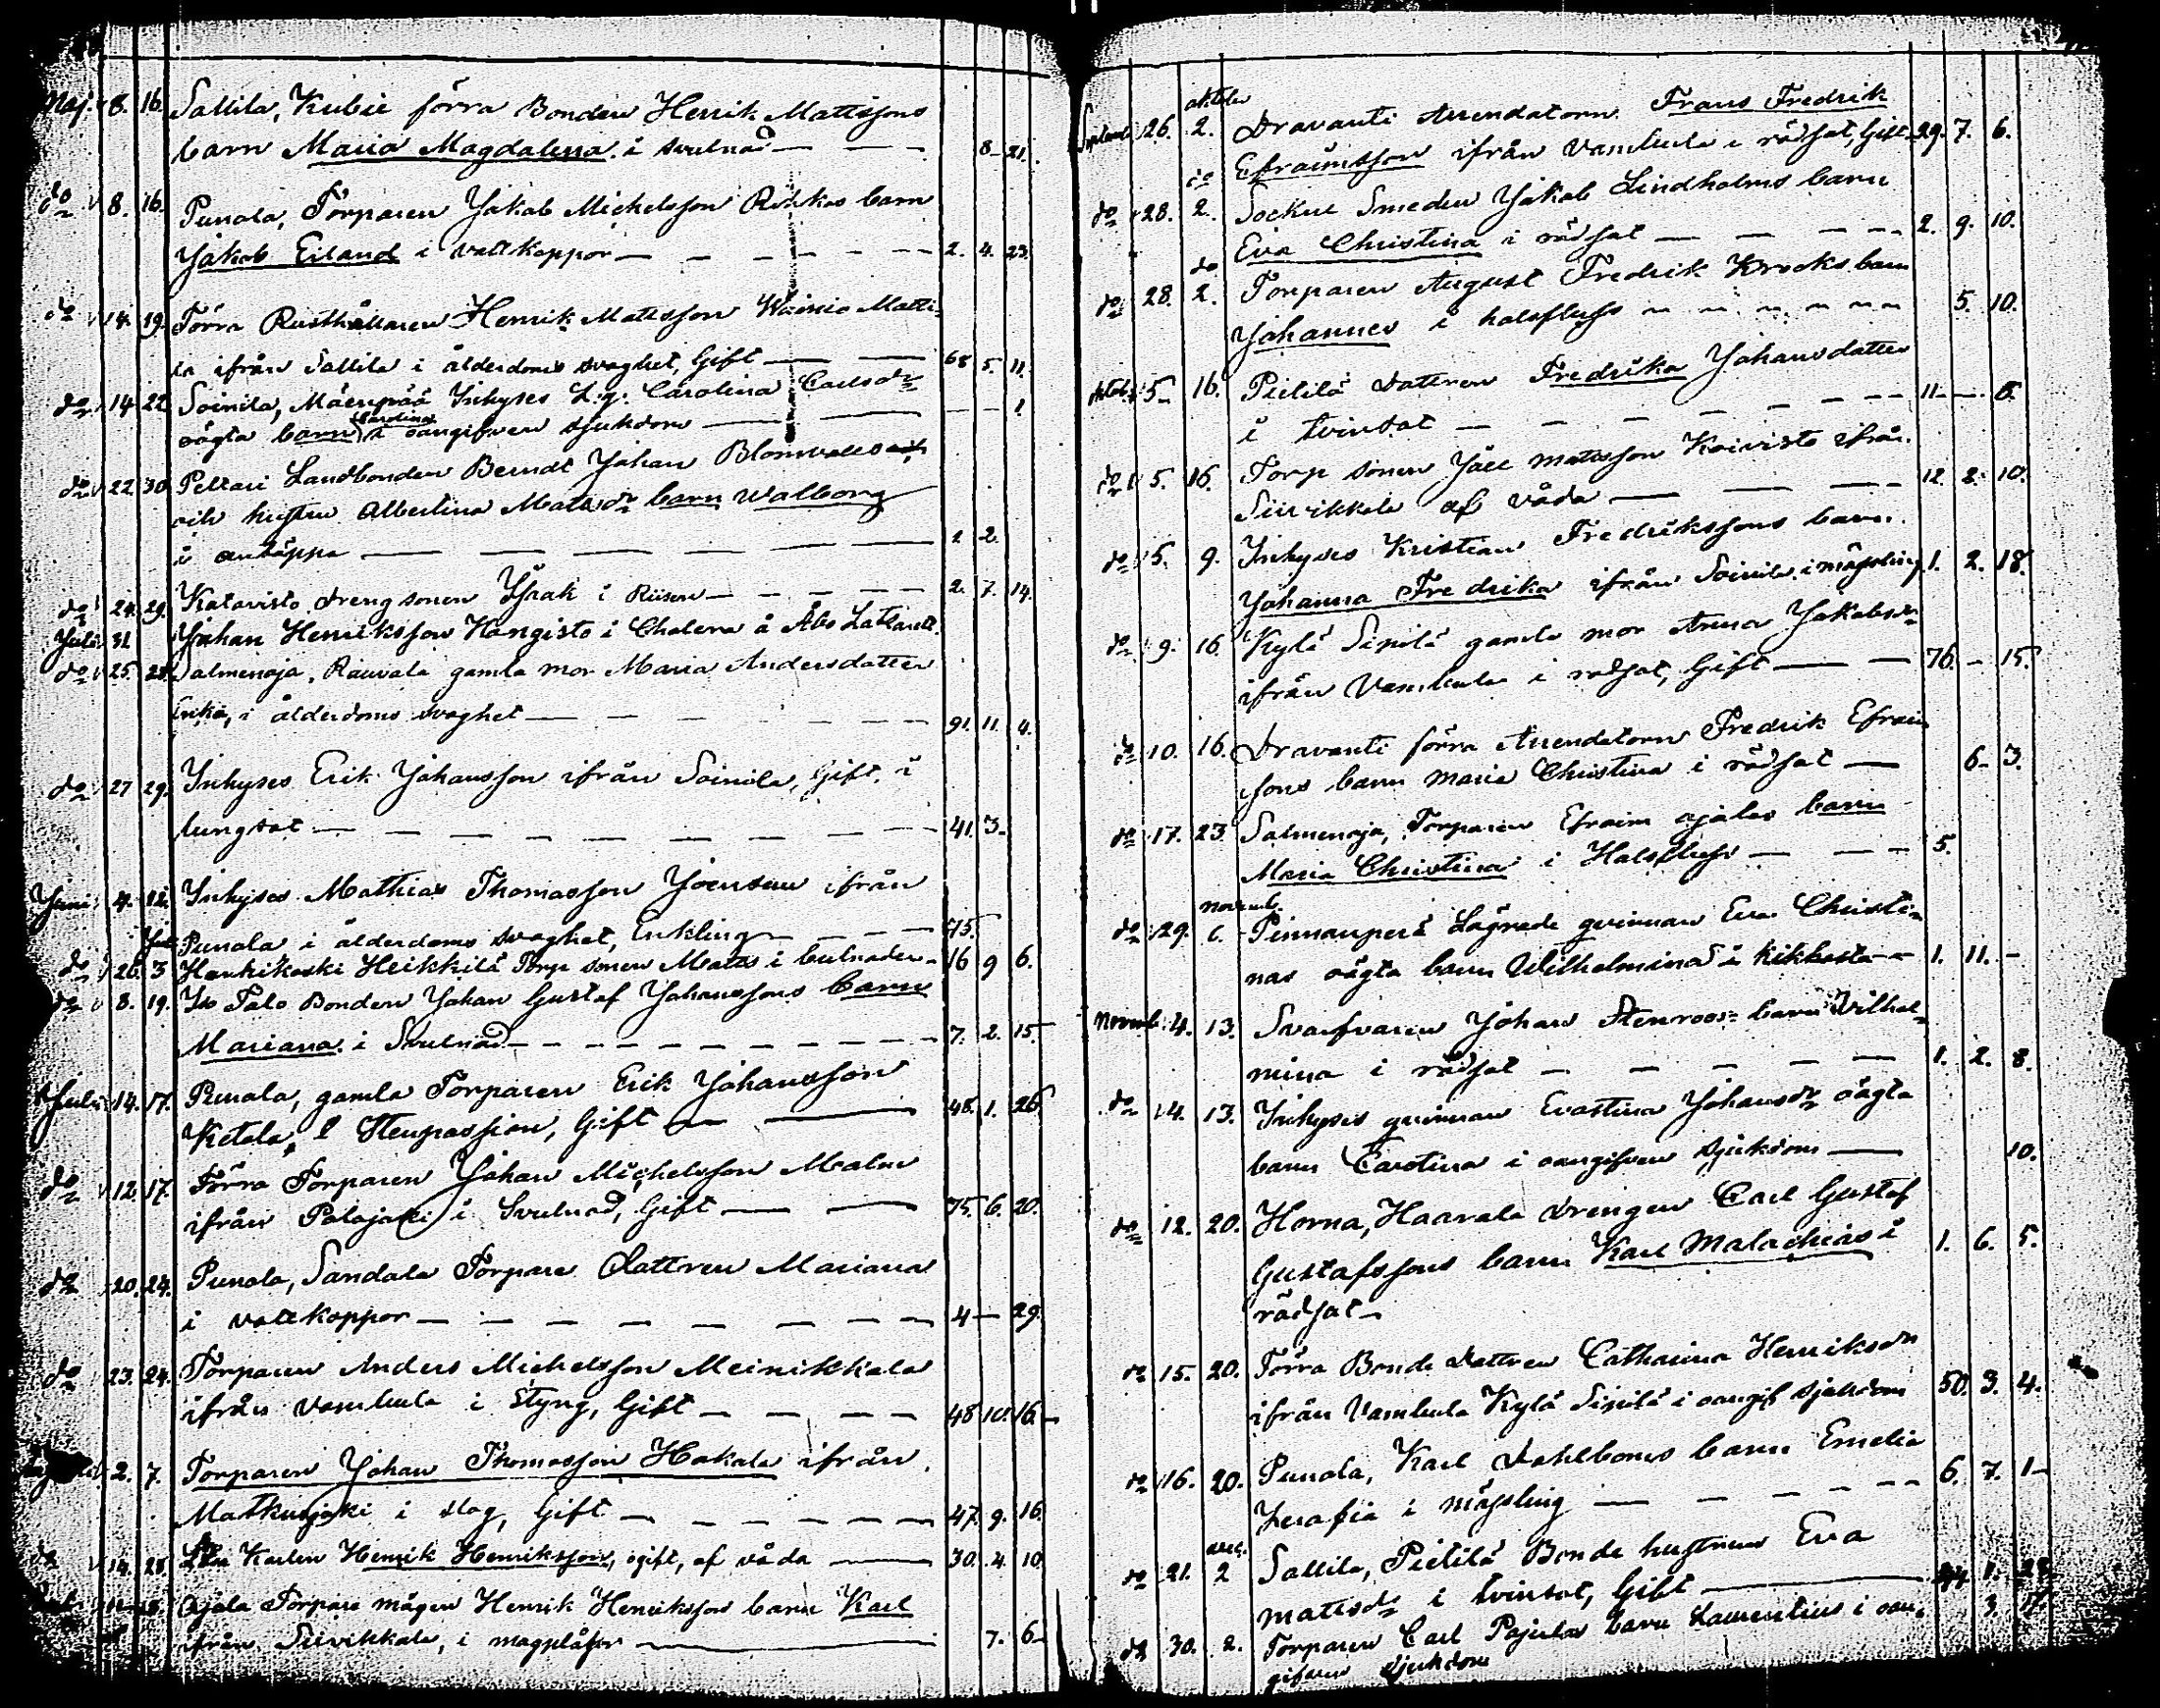 Maj 8. 16. Sallila, Kubie förra Bonden Henrik Mattssons
barn Maria Magdalena i svulnad — — — 8. 21.
do 8. 16. Punola, Torparen Jakob Michelsson barn
Jakob Eiland i vattkoppor — — — 2. 4. 23.
do 14. 19. Förra Rusthållaren Henrik Mattsson Wainio Matti-
la ifrån Sallila i ålderdoms svaghet, Gift — — 68 5. 11.
do 14 22 Soinila, Mäenpää Inhyses Carolina Carlsdr
oägta barn Carolina i oangifven sjukdom — — — 1.
do 22 30 Peltari Landbonden Berndt Johan
och hustru Albertina Matsdr barn Walborg
i andtäppa — — — — 1 2.
do 24. 29. Katavisto drengsonen Isaak i Risen — — — 2. 7. 14.
Juli 31 Johan Henriksson Kangisto i Cholera å Åbo Lattarett.
do 25. 28. Salmenoja, Rauvala gamla mor Maria Andersdotter
Enka, i ålderdoms svaghet — — — — 91. 11. 4.
do 27 29. Inhyses Erik Johansson ifrån Soinila, Gift, i
lungsot — — — — — — — 41. 3.
Juni 4. 12. Inhyses Mathias Thomasson Joensuu ifrån
Juli Punola i ålderdoms svaghet, Enkling — — — 75.
do 26. 3 Hankikoski Heikkilä Torp sonen Matts i bulnader — 16 9 6.
do 8. 19. Iso Palo Bonden Johan Gustaf Johanssons barn
Mariana i Svulnad — — — — — 7. 2. 15.
Juli 14. 17. Punola, gamla Torparen Erik Johansson
Ketala, i Stenpassion, Gift — — 48. 1. 26.
do 12. 17. Förra Torparen Johan Michelsson Malm
ifrån Palojoki i Svulnad, Gift — — 75. 6. 20.
do 20. 24. Punola, Sandala Torpare Dattren Mariana
i vattkoppor — — — — — — 4 — 29.
do 23. 24. Torparen Anders Michelsson Meinikkala
ifrån Vambula i Styng, Gift — — — — 48 10. 16.
2. 7. Torparen Johan Thomasson Hakala ifrån
Matkusjoki i slag, Gift — — — — — 47. 9. 16.
do 14. 28. Karlen Henrik Henriksson, ogift, af våda — 30. 4. 10.
Ojala Torpare mågen Henrik Henriksson barn Karl
ifrån Sirvikkala, i magplågor — 7. 6.
oktober
September 26. 2. Dravanti Arrendatorn Frans Fredrik
Efraimsson ifrån Vambula i rödsot, Gift — 29. 7. 6.
do
do 28. 2. Socken Smeden Jakob Lindholms barn
Eva Christina i rödsot — — — 2. 9. 10.
do
do 28. 2. Torparen August Fredrik Krooks barn
Johannes i halsfluss — — — — 5. 10.
Oktob. 5. 16. Pietilä dattren Fredrika Johansdotter
i tvinsot — — — — — — 11. — 5.
do 5. 16. Torp sonen Joel Mattsson Koivisto ifrån
Sirvikkala af våda — — — 12 2. 10.
do 5. 9. Inhyses Kristian Fredrikssons barn
Johanna Fredrika ifrån Soinila i mässling 1. 2. 18.
do 9. 16. Kylä Sipilä gamla mor Anna Jakobsdr
ifrån Vambula i rödsot, Gift — — 76. — 15.
do 10. 16. Dravanti förra Arrendatorn Fredrik Efraim
sons barn Maria Christina i rödsot — 6. 3.
do 17. 23 Salmenoja, Torparen Efraim Ojalas barn
Maria Christina i Halsfluss — — — 5.
novemb.
do 29. 6. Pinnanperä Lägrade qvinnan Eva Christi-
nas oägta barn Wilhelmina i kikhosta — 1. 11. —
Novemb. 4. 13. Svarfvaren Johan Stenroos barn Vilhel-
mina i rödsot — — — — 1. 2. 8.
do 4. 13. Inhyses qvinnan Evastina Johansdr oägta
barn Carolina i oangifven sjukdom — 10.
do 12. 20. Horna, Haavala drengen Carl Gustaf
Gustafssons barn Karl Malachias i 1. 6. 5.
rödsot —
do 15. 20. Förra Bonde dattren Catharina Henriksdr
ifrån Vambula Kylä Sipilä i oangif sjukdom 50. 3. 4.
do 16. 20. Punola, Karl Dahlboms barn Emelia
Serafia i mässling — — — — 6. 7. 1
dec.
do 21. 2 Sallila, Pietilä Bonde hustrun Eva
Mattsdr i tvinsot, Gift — 44 1. 28.
do 30. 2. Torparen Carl Pajulas barn Laurentius i oan- 3. 17.
gifven sjukdom